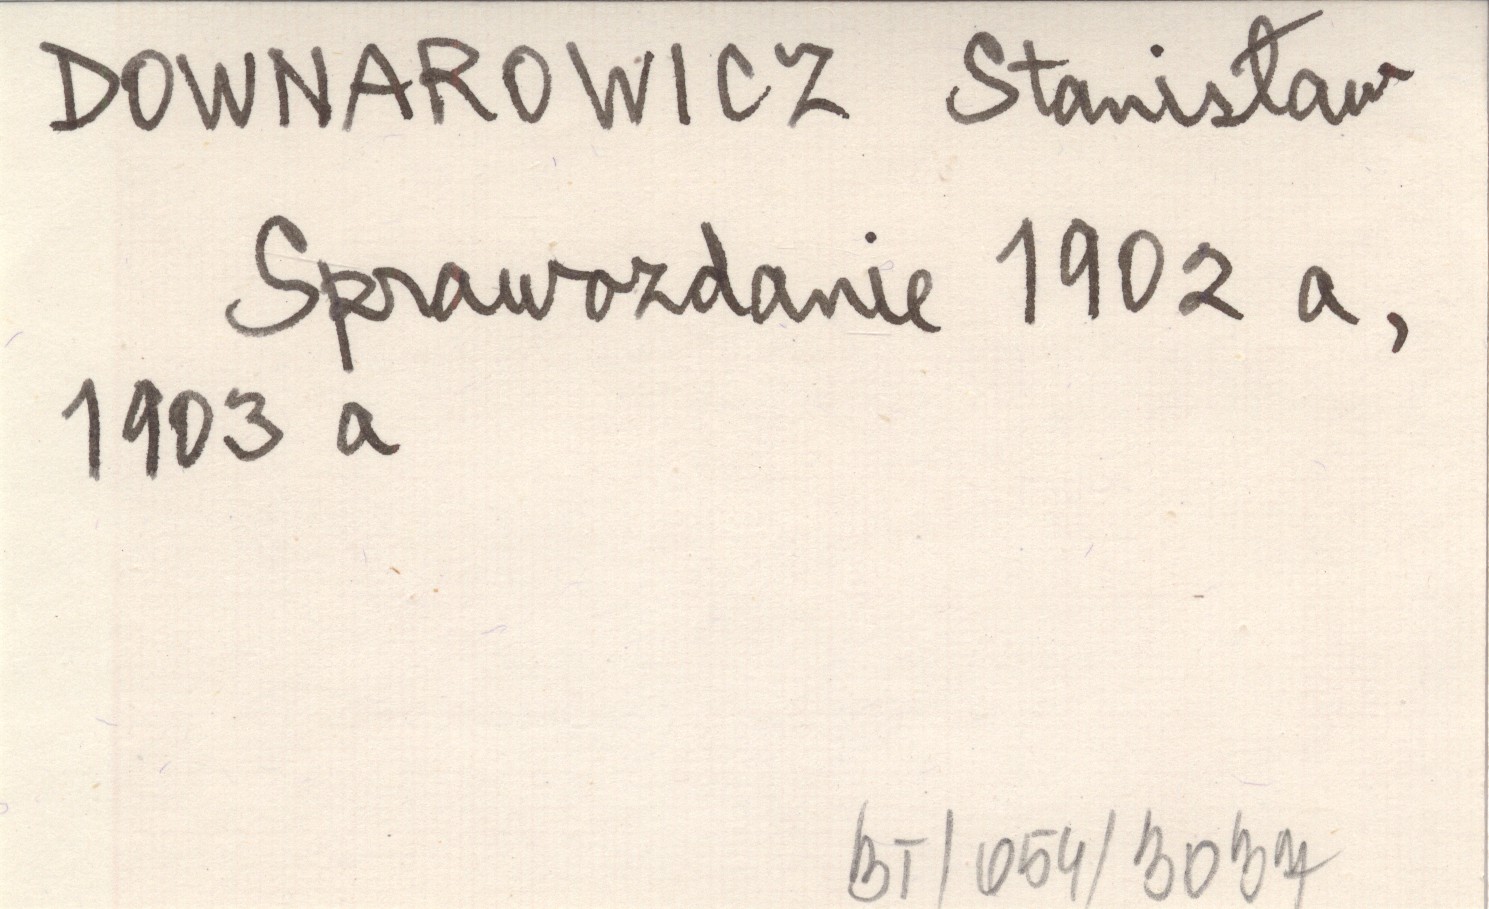 DOWNAROWICZ Stanisław
Sprawozdanie 1902 a,
1903 a